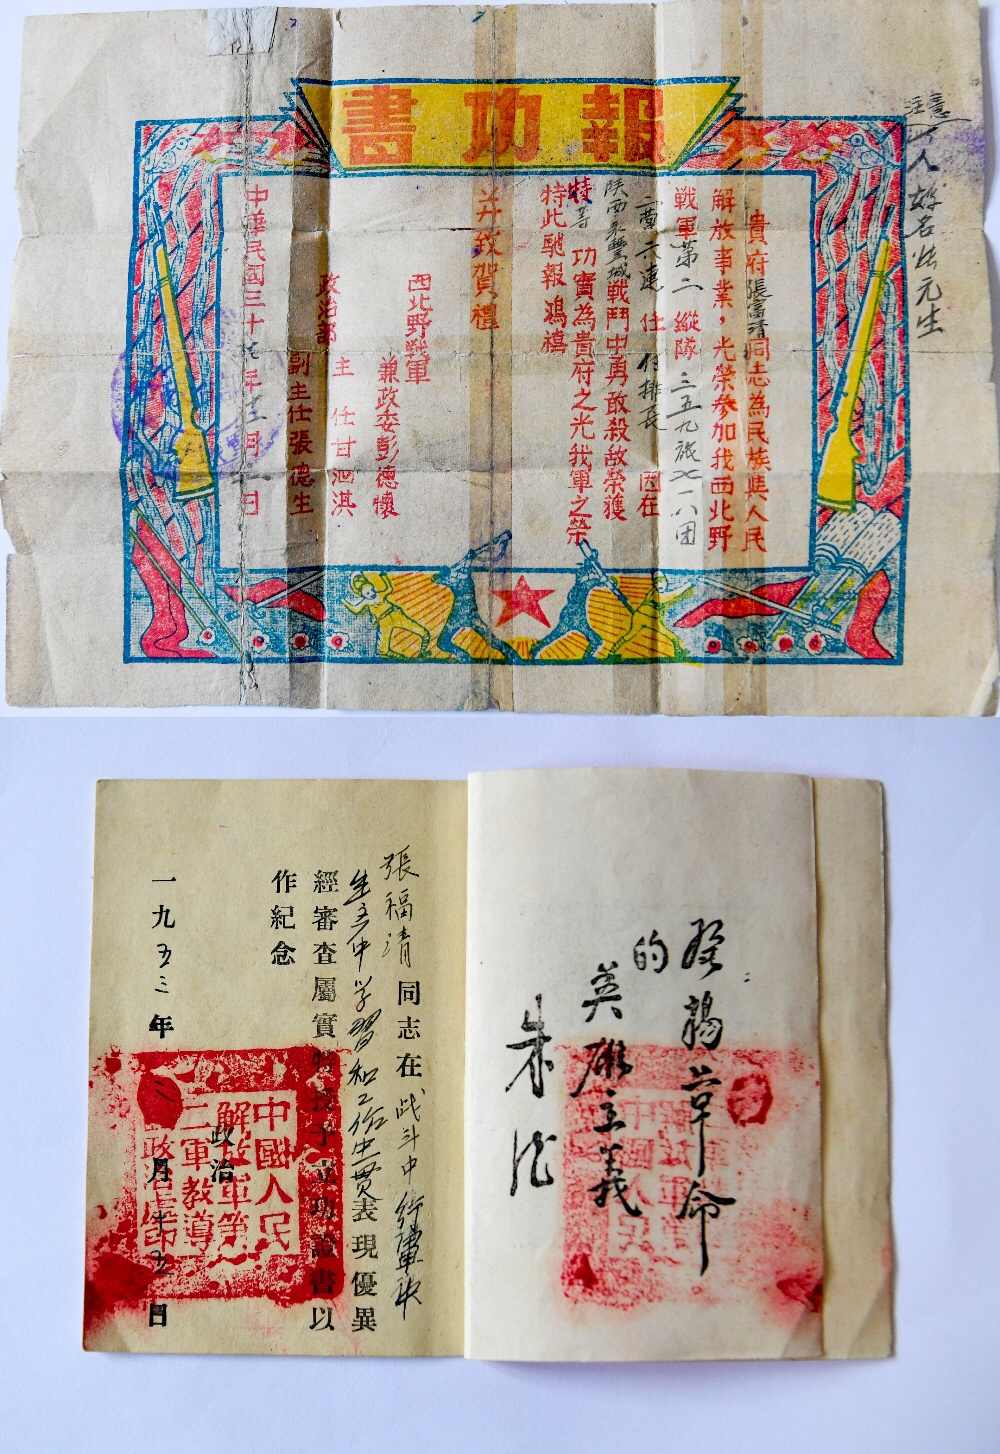 報功書
貴府張富清同志為民族與人民
解放事業，光榮參加我西北野
戰軍第二縱隊三五九旅七一八团
二营六連任付排長因在
陕西永豐城戰鬥中勇敢殺敵榮獲
特等功實為貴府之光我軍之榮
特此馳報鴻禧
并致賀禮
西北野戰軍
兼政委彭德懷
政治部主任甘泗淇
副主任張德生
中華民國三十七年十二月日
注意
人姓名
張福清同志在战斗中行軍
生产中学習和工作中一贯表現優異
經審查屬實特授予立功證書以
作紀念
政治
一九五三年二月十五日
中國人民
解放軍第
二軍教導
發揚革命
的
英雄主義
朱德